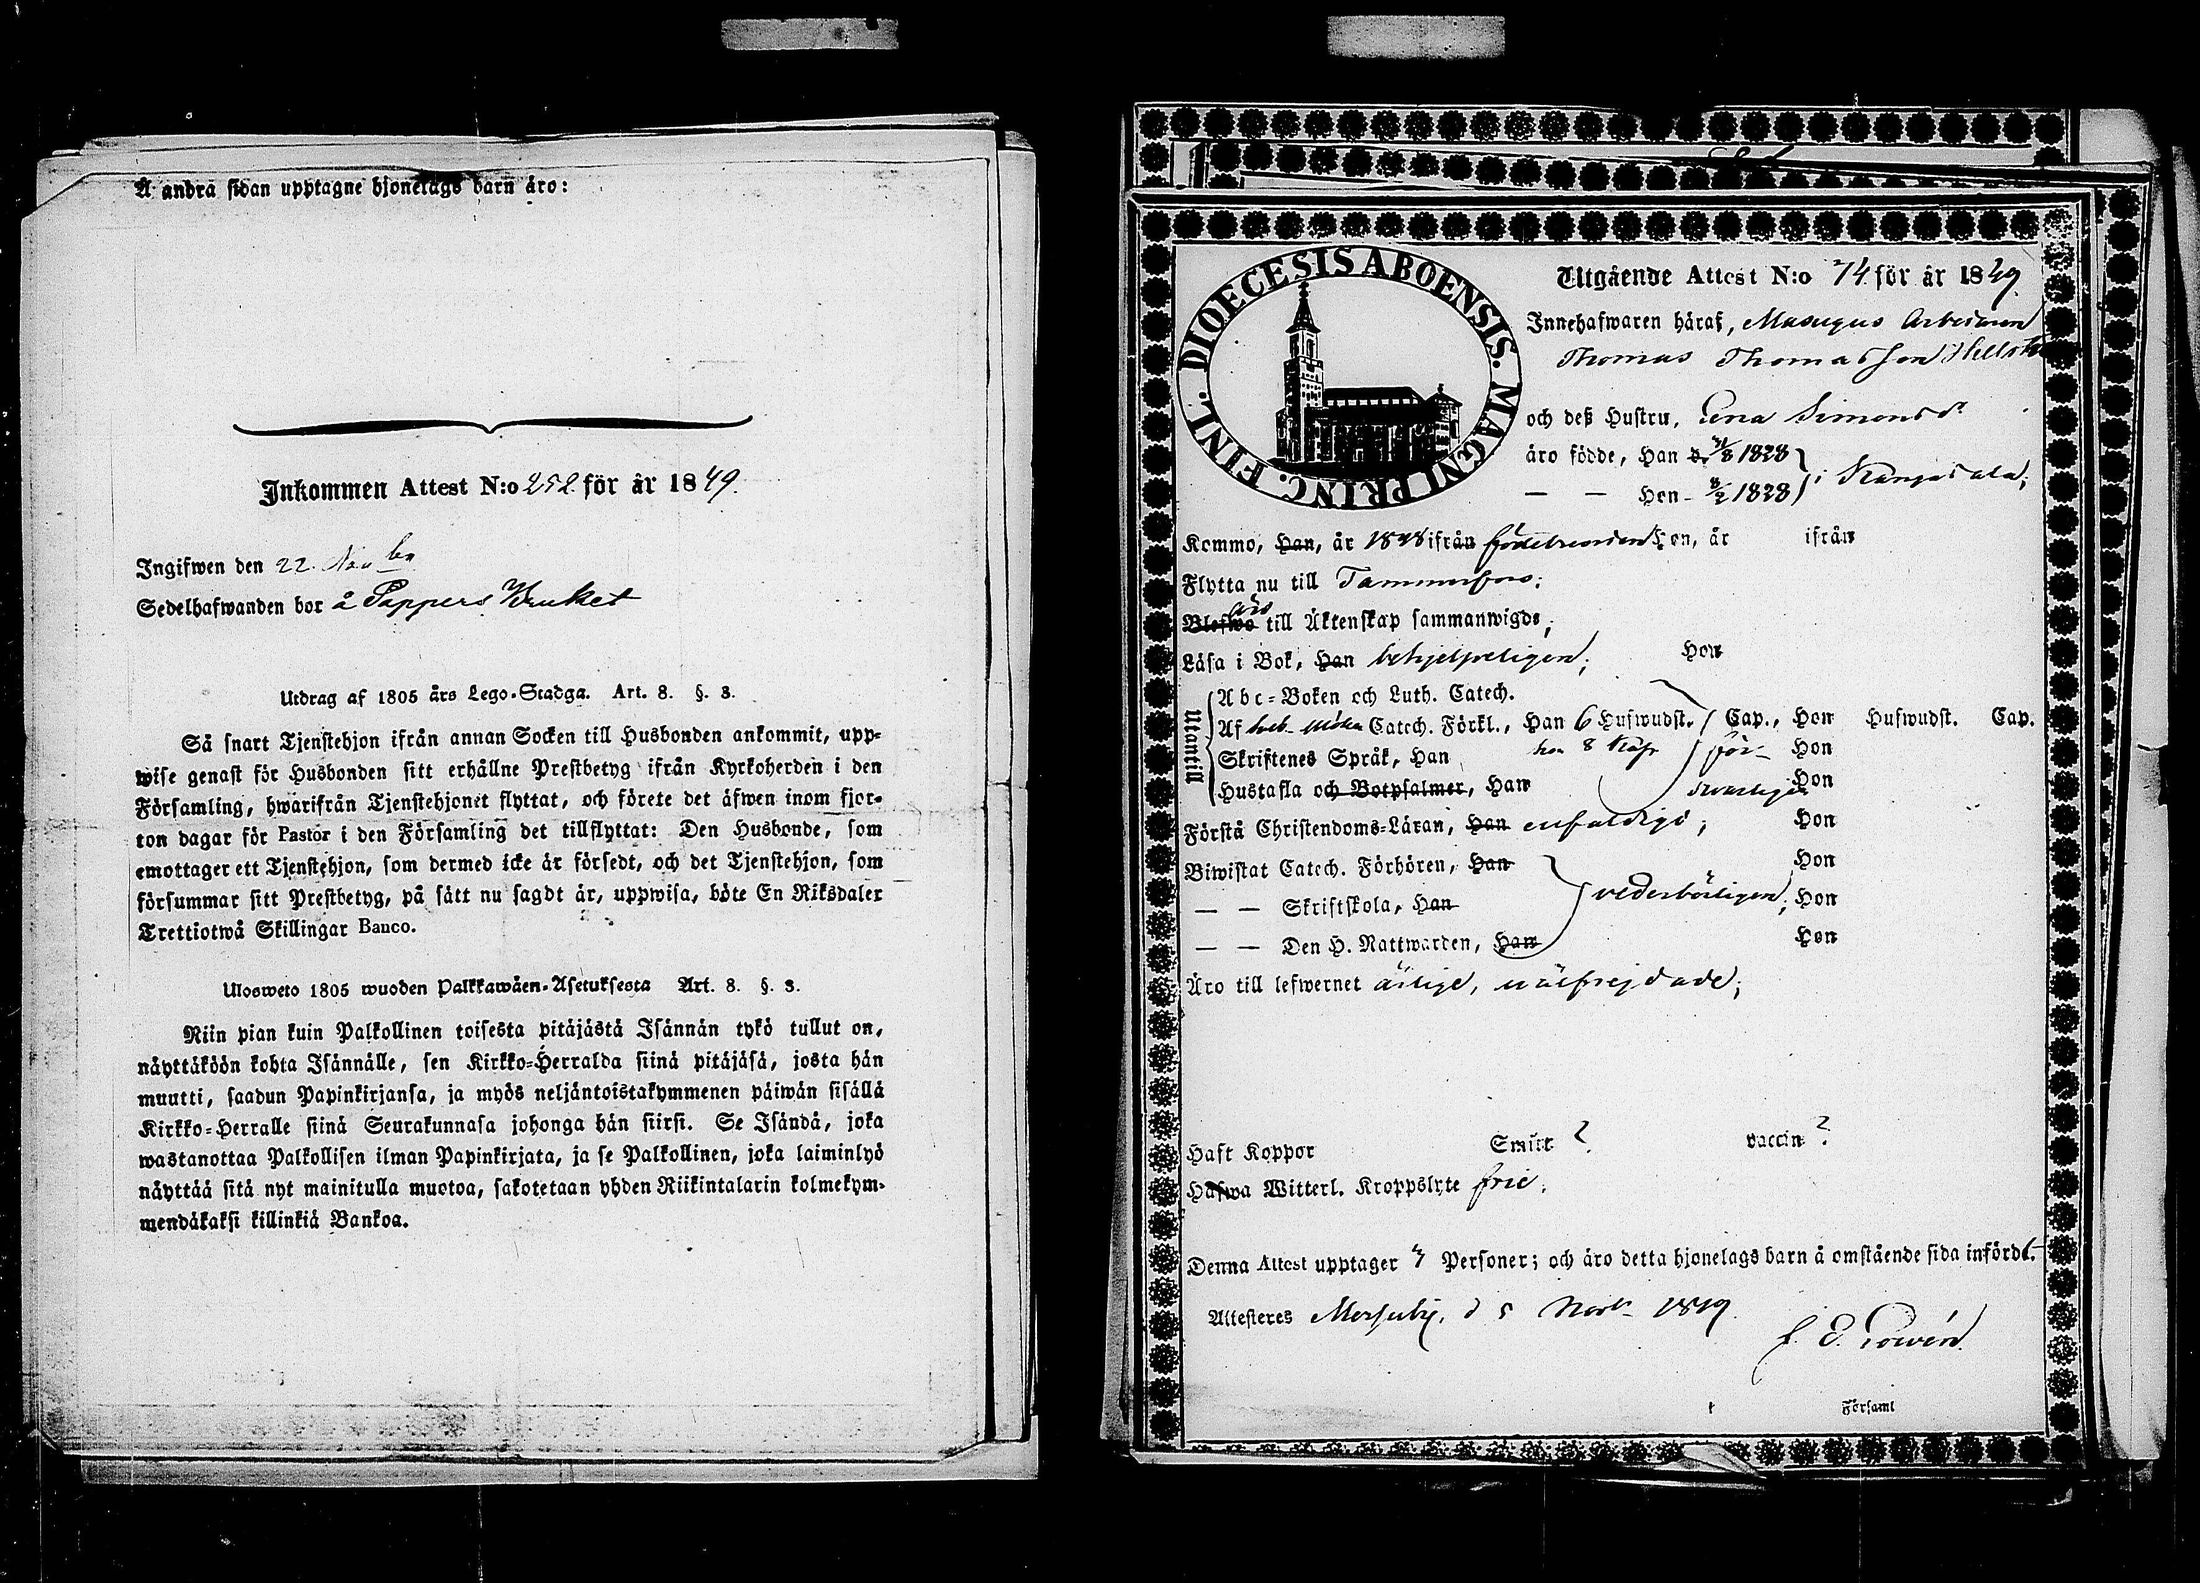 Å andra sidan upptagne hjonelags barn äro:
Inkommen Attest N:o 252 för år 1849.
Ingifwen den 22 Nov br
Sedelhafwanden bor å Pappers Bruket
Utdrag af 1805 års Lego-Stadga. Art. 8. §. 3.
Så snart Tjenstehjon ifrån annan Socken till Husbonden ankommit, upp-
wise genast för Husbonden sitt erhållne Prestbetyg ifrån Kyrkoherden i den
Församling, hwarifrån Tjenstehjonet flyttat, och förete det äfwen inom fjor-
ton dagar för Pastor i den Församling det tillflyttat: Den Husbonde, som
emottager ett Tjenstehjon, som dermed icke är försedt, och det Tjenstehjon, som
försummar sitt Prestbetyg, på sätt nu sagdt är, uppwisa, böte En Riksdaler
Trettiotwå Skillingar Banco.
Ulosweto 1805 wuoden Palkkawäen-Asetuksesta Art. 8. §. 3.
Niin pian kuin Palkollinen toisesta pitäjästä Isännän tykö tullut on,
näyttäköön kohta Isännälle, sen Kirkko-Herralda siinä pitäjäsä, josta hän
muutti, saadun Papinkirjansa, ja myös neljäntoistakymmenen päiwän sisällä
Kirkko-Herralle siinä Seurakunnasa johonga hän siirsi. Se Isändä, joka
wastanottaa Palkollisen ilman Papinkirjata, ja se Palkollinen, joka laiminlyö
näyttää sitä nyt mainitulla muotoa, sakotetaan yhden Riikintalarin kolmekym-
mendäkaksi killinkiä Bankoa.
DIOECESIS ABOENSIS. MAGNI PRINC. FINL.
Utgående Attest N:o 74 för år 1849.
Innehafwaren häraf, Masugns Arbetaren
Thomas Thomasson
och deß Hustru, Lena Simonsd:r
äro födde, Han d. 1828
— — Hon 8/2 1828 i Kangasala;
Kommo, Han, år 1848 ifrån födelseorten Hon, år ifrån
Flytta nu till Tammerfors;
Blefwo äro till Äktenskap sammanwigde;
Läsa i Bok, Han behjelpeligen; Hon
Utantill
Abc-Boken och Luth. Catech.
Af Catech. Förkl., Han 6 Hufwudst. Cap., Hon Hufwudst. Cap.
Skriftenes Språk, Han hon 8 för- Hon
Hustafla och Botpsalmer, Han svarligen Hon
Förstå Christendoms-Läran, Han enfaldigt; Hon
Biwistat Catech. Förhören, Han Hon
— — Skriftskola, Han vederbörligen; Hon
— — Den H. Nattwarden, Han Hon
Äro till lefwernet ärlige, wälfrejdade;
Haft Koppor Smitt ? vaccin ?
Hafwa Witterl. Kroppslyte frie.
Denna Attest upptager Personer; och äro detta hjonelags barn å omstående sida införde.
Attesteres d 5 Novbr 1849.
Församl